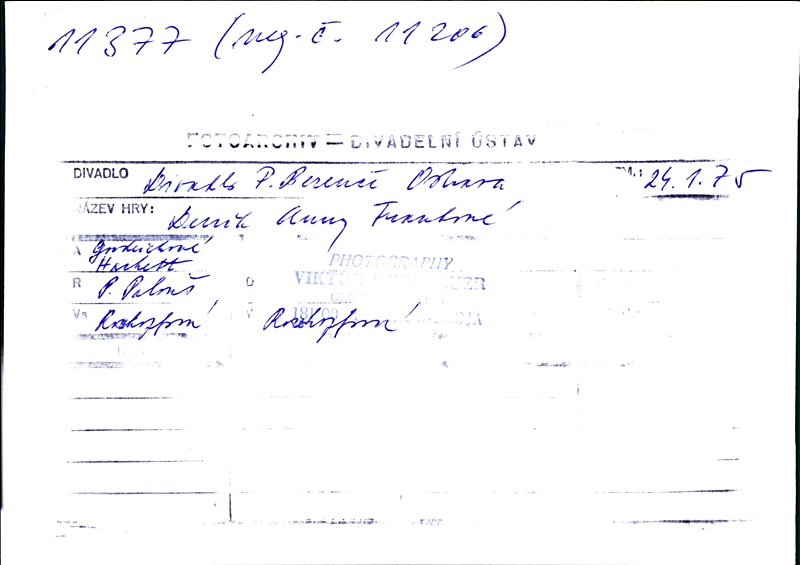 11377 (neg. č. 11206)
FOTOARCHIV — DIVADELNÍ ÚSTAV
DIVADLO Divadlo P. Bezruče Ostrava 24.1.75
NÁZEV HRY: Deník Anny Frankové
A Goodrichová
Hackett
R P. Palouš
PHOTOGRAPHY
VIKTOR
181 00